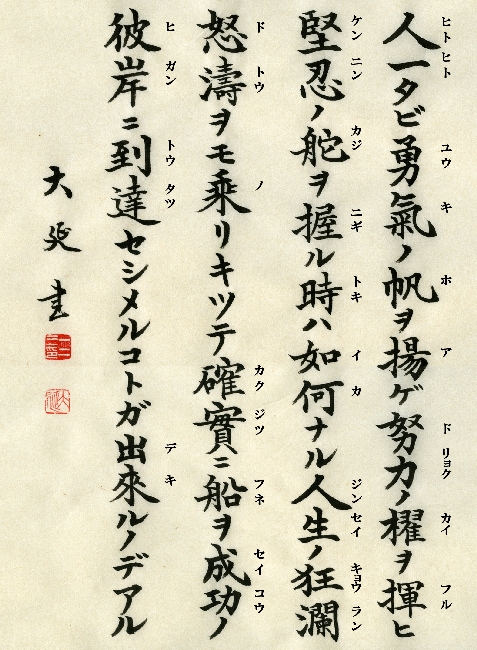 ヒト ヒト ユウ キ ホ ア ド リョク カイ フル
人一タビ勇氣ノ帆ヲ揚ゲ努力ノ櫂ヲ揮ヒ
ケン ニン カジ ニギ トキ イ カ ジン セイ キョウ ラン
堅忍ノ舵ヲ握ル時ハ如何ナル人生ノ狂瀾
ド トウ ノ カク ジツ フネ セイ コウ
怒濤ヲモ乗リキツテ確實ニ船ヲ成功ノ
ヒ ガン トウ タツ デ キ
彼岸ニ到達セシメルコトガ出來ルノデアル
大延書